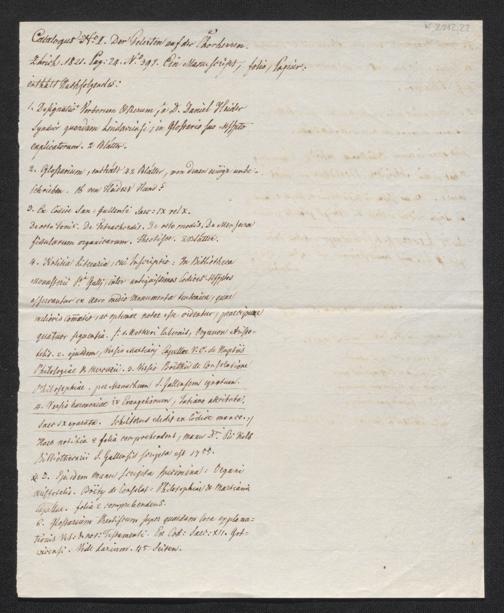 Catalogus No I. Der Telisten auf der Chorherren.
Zürich. 1821. Pag: 29. No 391. Ein Manuscript, folio, Papier.
enthält Nachfolgendes:
1. Designatio Verborum & Rerum, a D. Daniel Heider
Syndico quondam lindaviensi, in Glossario suo Mspto
explicatorum. 2 Blätter.
2. Glossarium, enthält 22 Blätter, von denen einige unbe-
schrieben. Ob von Heiders Hand?
3. Ex Codice San-gallensi Saec: IX vel X.
De octo tonis. De Tetrachordis. De octo modis. De Mensura
fistularum organicarum. Theotisce. Blätter.
4. Notitia literaria, cui Inscriptio: In Bibliotheca
Monasterii Sti Galli, inter antiquissimos Codices Msptos
asservantur ex aevo medio Monumenta teutonica, quae
melioris commatis, et optimae notae esse videntur, praecipue
quatuor sequentia. 1. Notkeri labeonis, Organon Aristo-
telis. 2. ejusdem, Versio Martiani Capellae V.C. de Nuptiis
Philologiae & Mercurii. 3. Versio Boëthii de Consolatione
Philosophiae. per Monachum S. Gallensem ignotum.
4. Versio harmoniae IV Evangeliorum, Tatiano attributa,
Saec: IX exarata. Schilterus edidit ex Codice manco.
Haec notitia 2 folia comprehendens, manu D. Pii Kolb
Bibliothecarii S. Gallensis scripta est 17
5. Ejusdem manu scripta specimina: Organi
Aristotelis. Boëtii de Consolat: Philosophiae & Martiani
Capellae. folia 2 comprehendens.
6. Glossarium Theotiscum super quaedam loca explana-
tionis Vet: & nov: Testamenti. Ex Cod: Saec: XII.
Vide 48 Seiten.